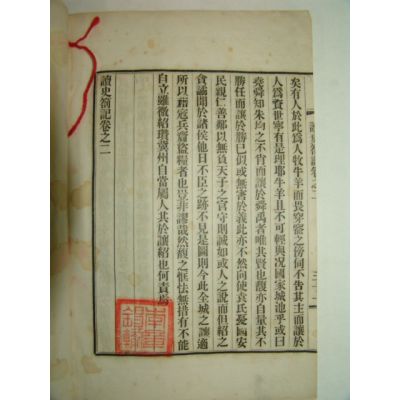 矣有人於此為人牧牛羊而畏穿窬之傍伺不告其主而讓於
人為賢世寧有是理耶牛羊且不可輕與况國家城池乎或曰
堯舜知朱均之不肖而讓於舜禹者唯其賢也馥亦自量其不
勝任而讓於勝已似或無害於義此亦不然向使袁氏憂國安
民親仁善鄰以無負天子之官守則誠如或人之說而但紹之
貪譎聞於諸侯他日不臣之跡不見是圖則今此全城之讓適
所以藉寇兵齎盜糧者也豈非謬哉然馥之恇怯無措有不能
自立雖微紹瓚冀州自當屬人其於讓紹也何責焉
讀史劄記卷之二